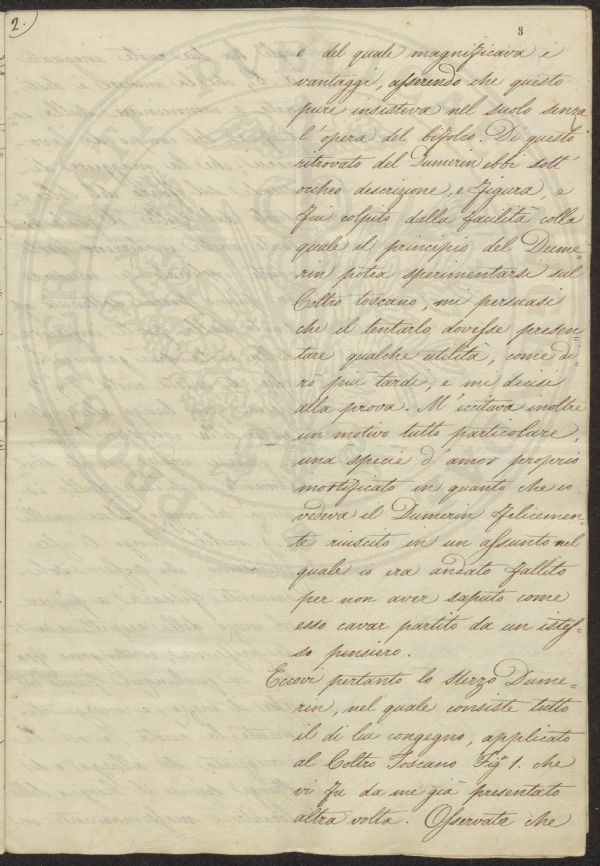 2.
8
e del quale magnificava i
vantaggi, asserendo che questo
pure insisteva nel suolo senza
l'opera del bifolco. Di questo
ritrovato del Dumerin ebbi sott'
occhio descrizione, e figura, e
fui colpito dalla facilità colla
quale il principio del Dume=
rin potea sperimentarsi sul
Coltro toscano, mi persuasi
che il tentarlo dovesse presen=
tare qualche utilità, come di=
rò più tardi, e mi decisi
alla prova. M'eccitava inoltre
un motivo tutto particolare,
una specie d'amor proprio
mortificato in quanto che io
vedeva il Dumerin felicemen=
te riuscito in un assunto nel
quale io era andato fallito
per non aver saputo come
esso cavar partito da un istes=
so pensiero.
Eccovi pertanto lo sterzo Dume=
rin, nel quale consiste tutto
il di lui congegno, applicato
al Coltro Toscano Fig.ª 1. che
vi fu da me già presentato
altra volta. Osservate che